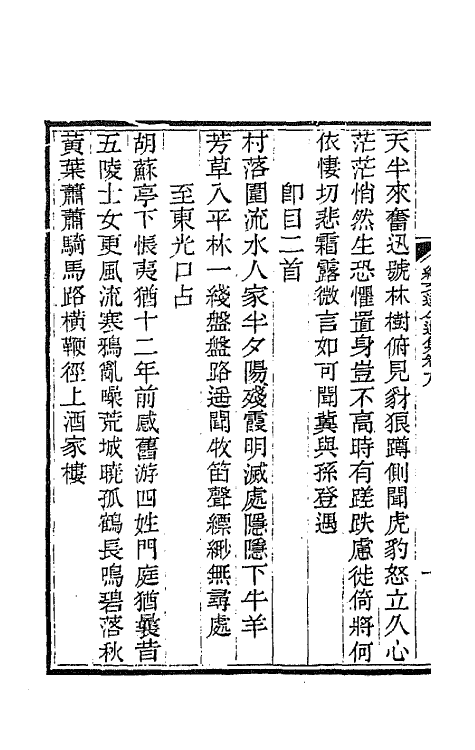 天半來奮迅號林樹俯見豺狼蹲側聞虎豹怒立久心
茫茫悄然生恐懼置身豈不高時有蹉跌慮徙倚將何
依悽切悲霜露微言如可聞冀與孫登遇
卽目二首
村落圍流水人家半夕陽殘霞明滅處隱隱下牛羊
芳草入平林一綫盤盤路遥聞牧笛聲縹緲無尋處
至東光口占
胡蘇亭下悵夷猶十二年前感舊游四姓門庭猶曩昔
五陵士女更風流寒鴉亂噪荒城曉孤鶴長鳴碧落秋
黃葉蕭蕭騎馬路橫鞭徑上酒家樓